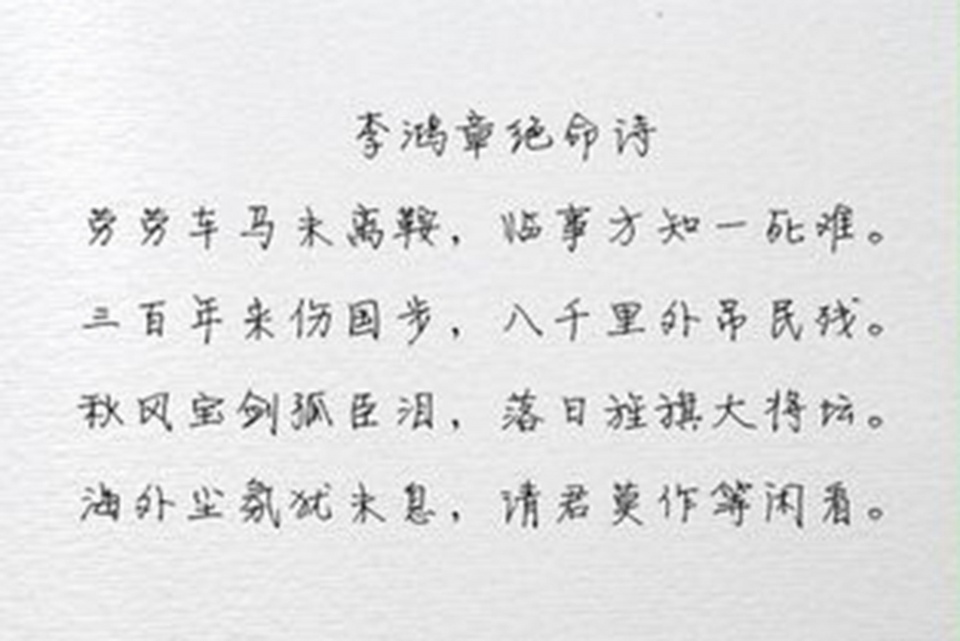 李鸿章绝命诗
劳劳车马未离鞍，临事方知一死难。
三百年来伤国步，八千里外吊民残。
秋风宝剑孤臣泪，落日旌旗大将坛。
海外尘氛犹未息，请君莫作等闲看。